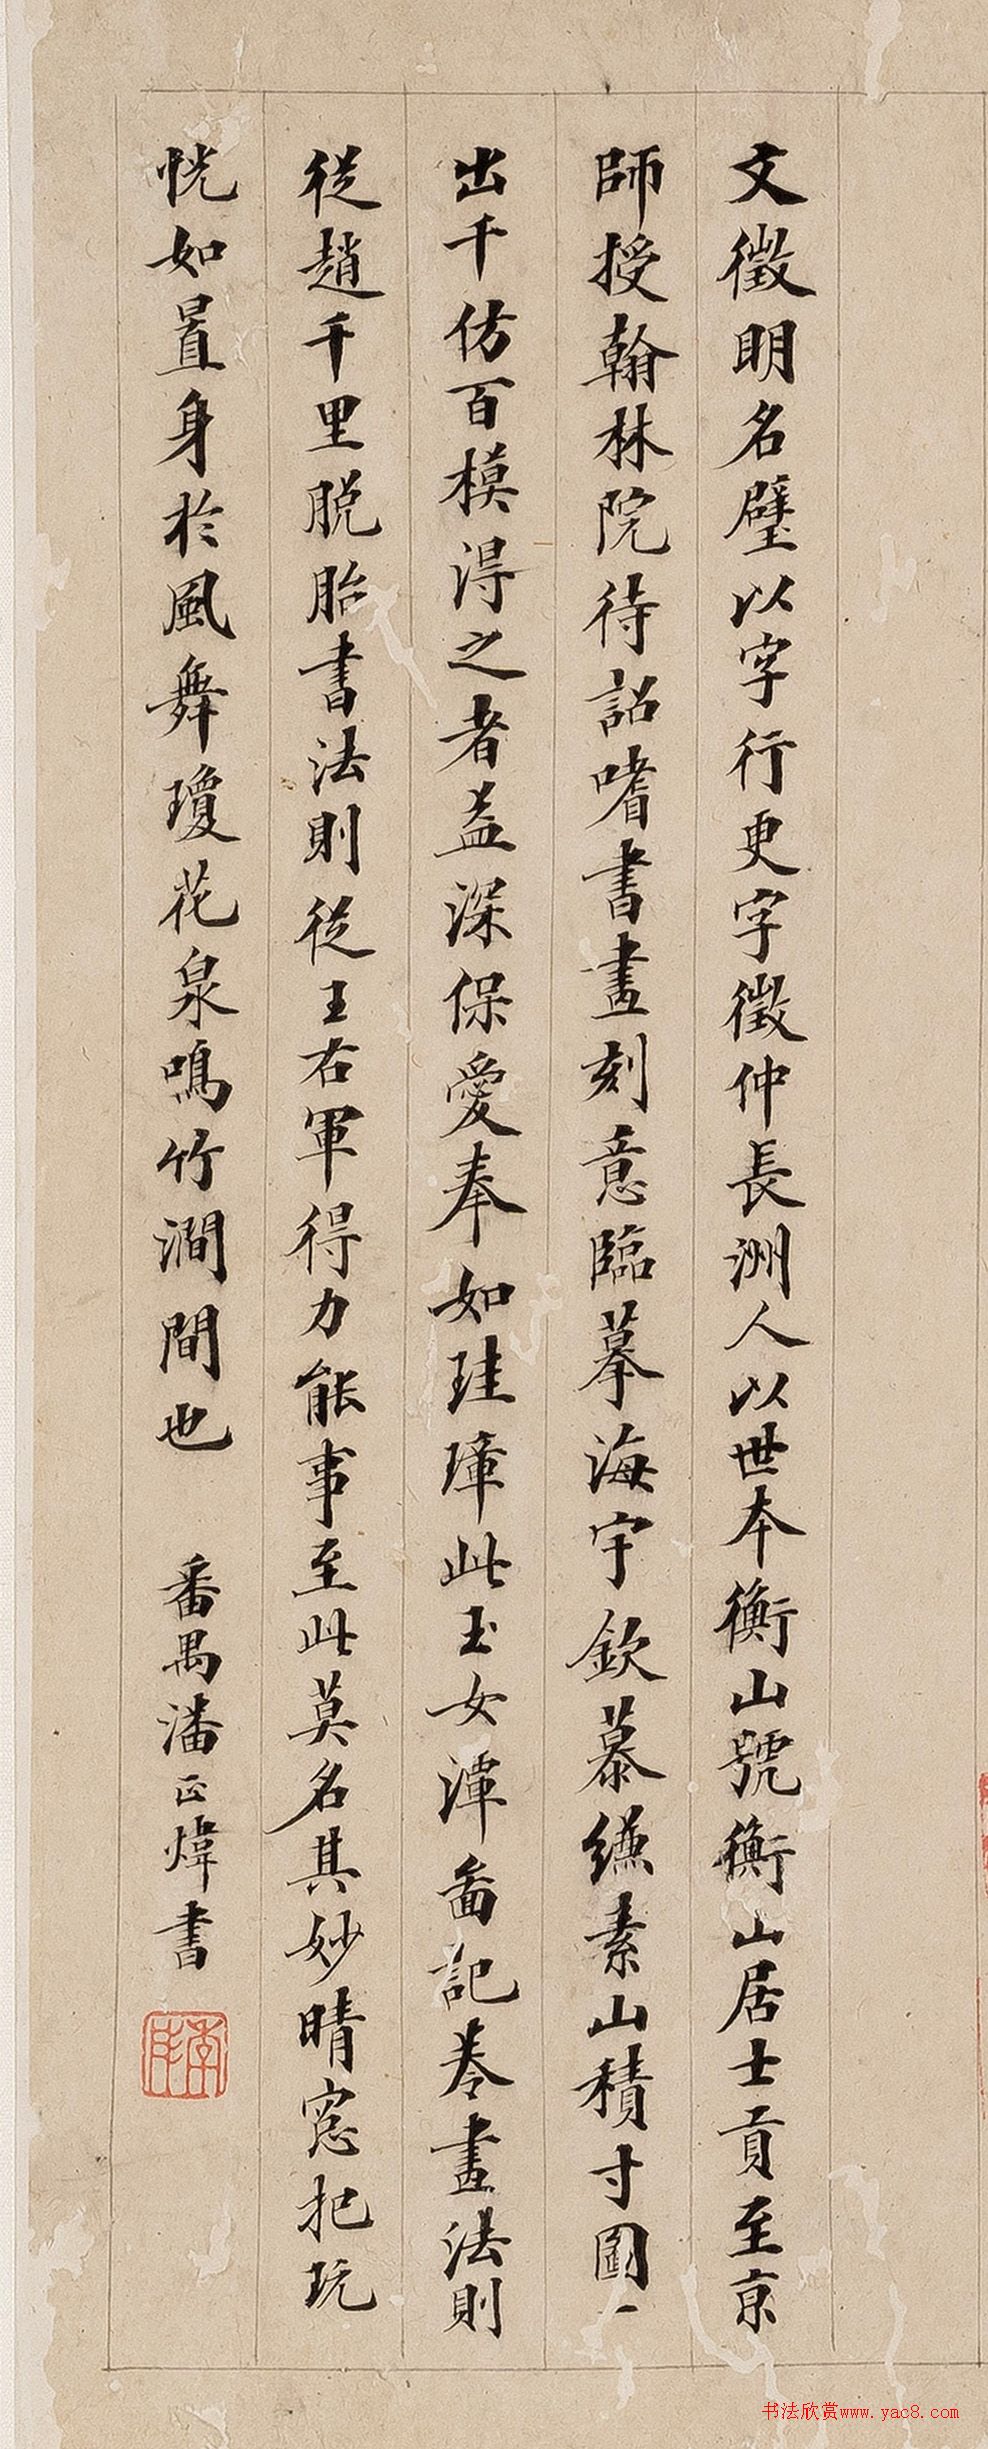 文徵明名璧以字行更字徵仲長洲人以世本衡山號衡山居士貢至京
師授翰林院待詔嗜書畫刻意臨摹海宇欽慕縑素山積寸圖一
出千仿百模淂之者益深保愛奉如珪璋此玉女潭畣記卷畫法則
従趙千里脱胎書法則従王右軍得力能事至此莫名其妙晴窓把玩
恍如置身於風舞瓊花泉鳴竹澗間也 番禺潘正煒書
书法欣赏www.yac8.com